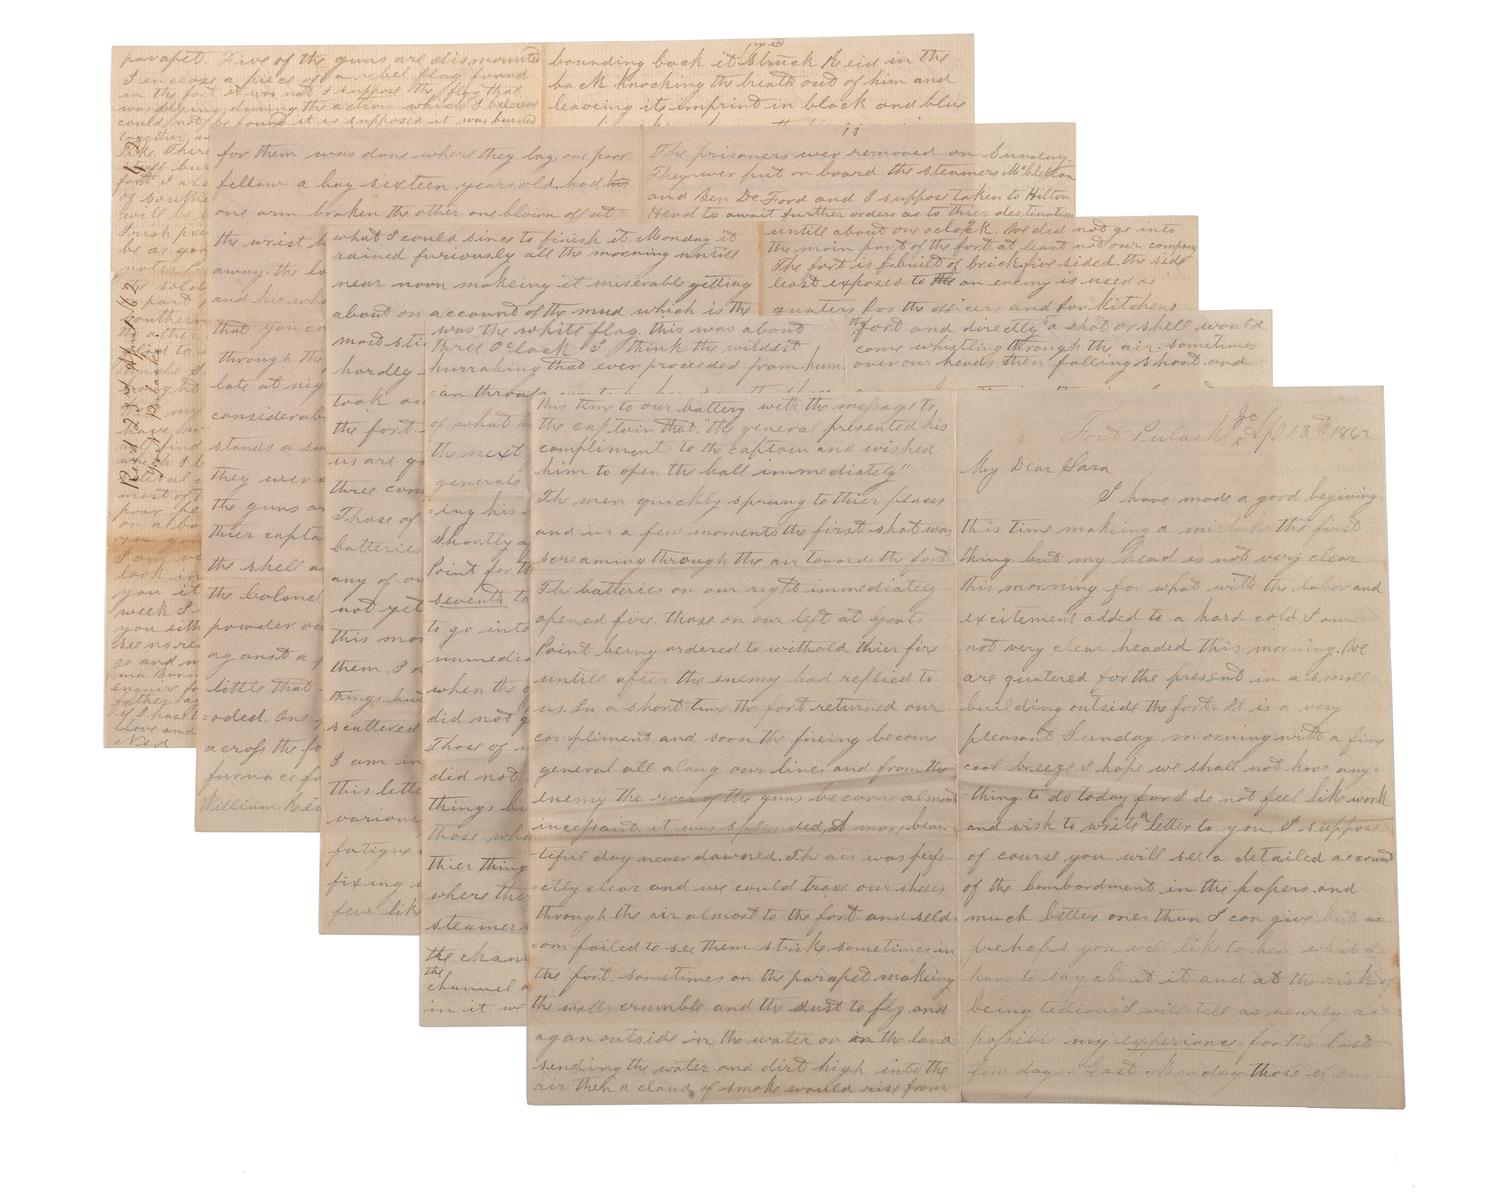 Fort Pulaski Ga Ap 13th 1862
My Dear Sara
I have made a good begining
this time making a mistake the first
thing but my head is not very clear
this morning for what with the labor and
excitement added to a hard cold I am
not very clear headed this morning. We
are quatered for the present in a small
building outside the fort. It is a very
pleasant Sunday morning with a fine
cool breeze I hope we shall not have any-
-thing to do today for I do not feel like work
and wish to write a letter to you. I suppose
of course you will see a detailed account
of the bombardment in the papers and
much better ones than I can give but as
prehaps you will like to hear what I
have to say about it and at the risk of
being tedious I will tell as nearly as
possible my experiance for the last
few days. Last Monday those of our
this time to our battery. with the message to
the captain that "the general presented his
compliments to the captain and wished
him to open the ball immediately"
The men quickly sprung to thier places
and in a few moments the first shot was
screaming through the air towards the fort
The batteries on our right immediately
opened fire. those on our left at Goats
Point being ordered to withold thier fire
untill after the enemy had replied to
us. In a short time the fort returned our
compliment and soon the fireing became
general all along our lines and from the
enemy the roar of the guns became almost
incessant. it was splended, A more beau-
-tiful day never dawned. The air was perfe-
-ctly clear and we could trace our shells
through the air almost to the fort. and seld-
-om failed to see them strike. sometimes in
the fort. sometimes on the parapet making
the walls crumble and the dust to fly and
again outside in the water or on the land
sending the water and dirt high into the
air then a cloud of smoke would rise from
was the white flag. this was about
three O'clock. I think the wildest
hurraking that ever proceeded from hum-
-an throats
of what
the next
generals
-ing his
Shortly a
Point for th
seventh to
to go into
immedia
when the
did not g
Those of
did not
things b
those who
thier thing
where the
steamers
the chan
the
channel a
in it we
fort and directly a shot or shell would
come whistling through the air. sometimes
over our heads then falling short and
what I could since to finish it. Monday it
rained furiously all the morning untill
near noon makeing it miserable getting
about on account of the mud which is the
most sti
hardly
took ou
the fort
us are g
three com
Those of
batteries
any of ou
not yet
this mor
them. I d
things. but
scattered
I am in
this lette
various
fatigue
fixing
few lik
untill about one oclock. We did not go into
the main part of the fort at least not our company
The fort is built of brick, five sided. the side
least exposed to an enemy is used as
quaters for the officers and for kitchens
for them was done where they lay. one poor
fellow a boy sixteen years old. had his
one arm broken the other one blown off at
the wrist h
away. the lo
and his who
that you co
through the
late at nig
considerab
stands a sm
they wer
the guns a
thier capta
the shell a
the balanc
powder ou
aganst a
little that
-oded. One
across the fo
furnace fo
William Reid
13
The prisoners wer removed on Sunday.
They wer put on board the steamers McClellan
and Ben De Ford and I suppose taken to Hilton
Head to await further orders as to thier destination
parapet. Five of the guns are dismounted
I enclose a piece of a rebel flag found
in the fort it was not I suppose the flag that
was flying during the action which I believe
could not be found it is supposed it was burned
together
like. There
of southe
will be
Irish pri
be as you
notes
the sold
a part
southern
look in
you it
week I
you eith
see no re
go and
enquire fo
father
if I has
love and
Ned
bounding back it struck Reid in the
back knocking the breath out of him and
leaveing it imprint in black and blue
Recd 23rd April /62
Fort Pulaski